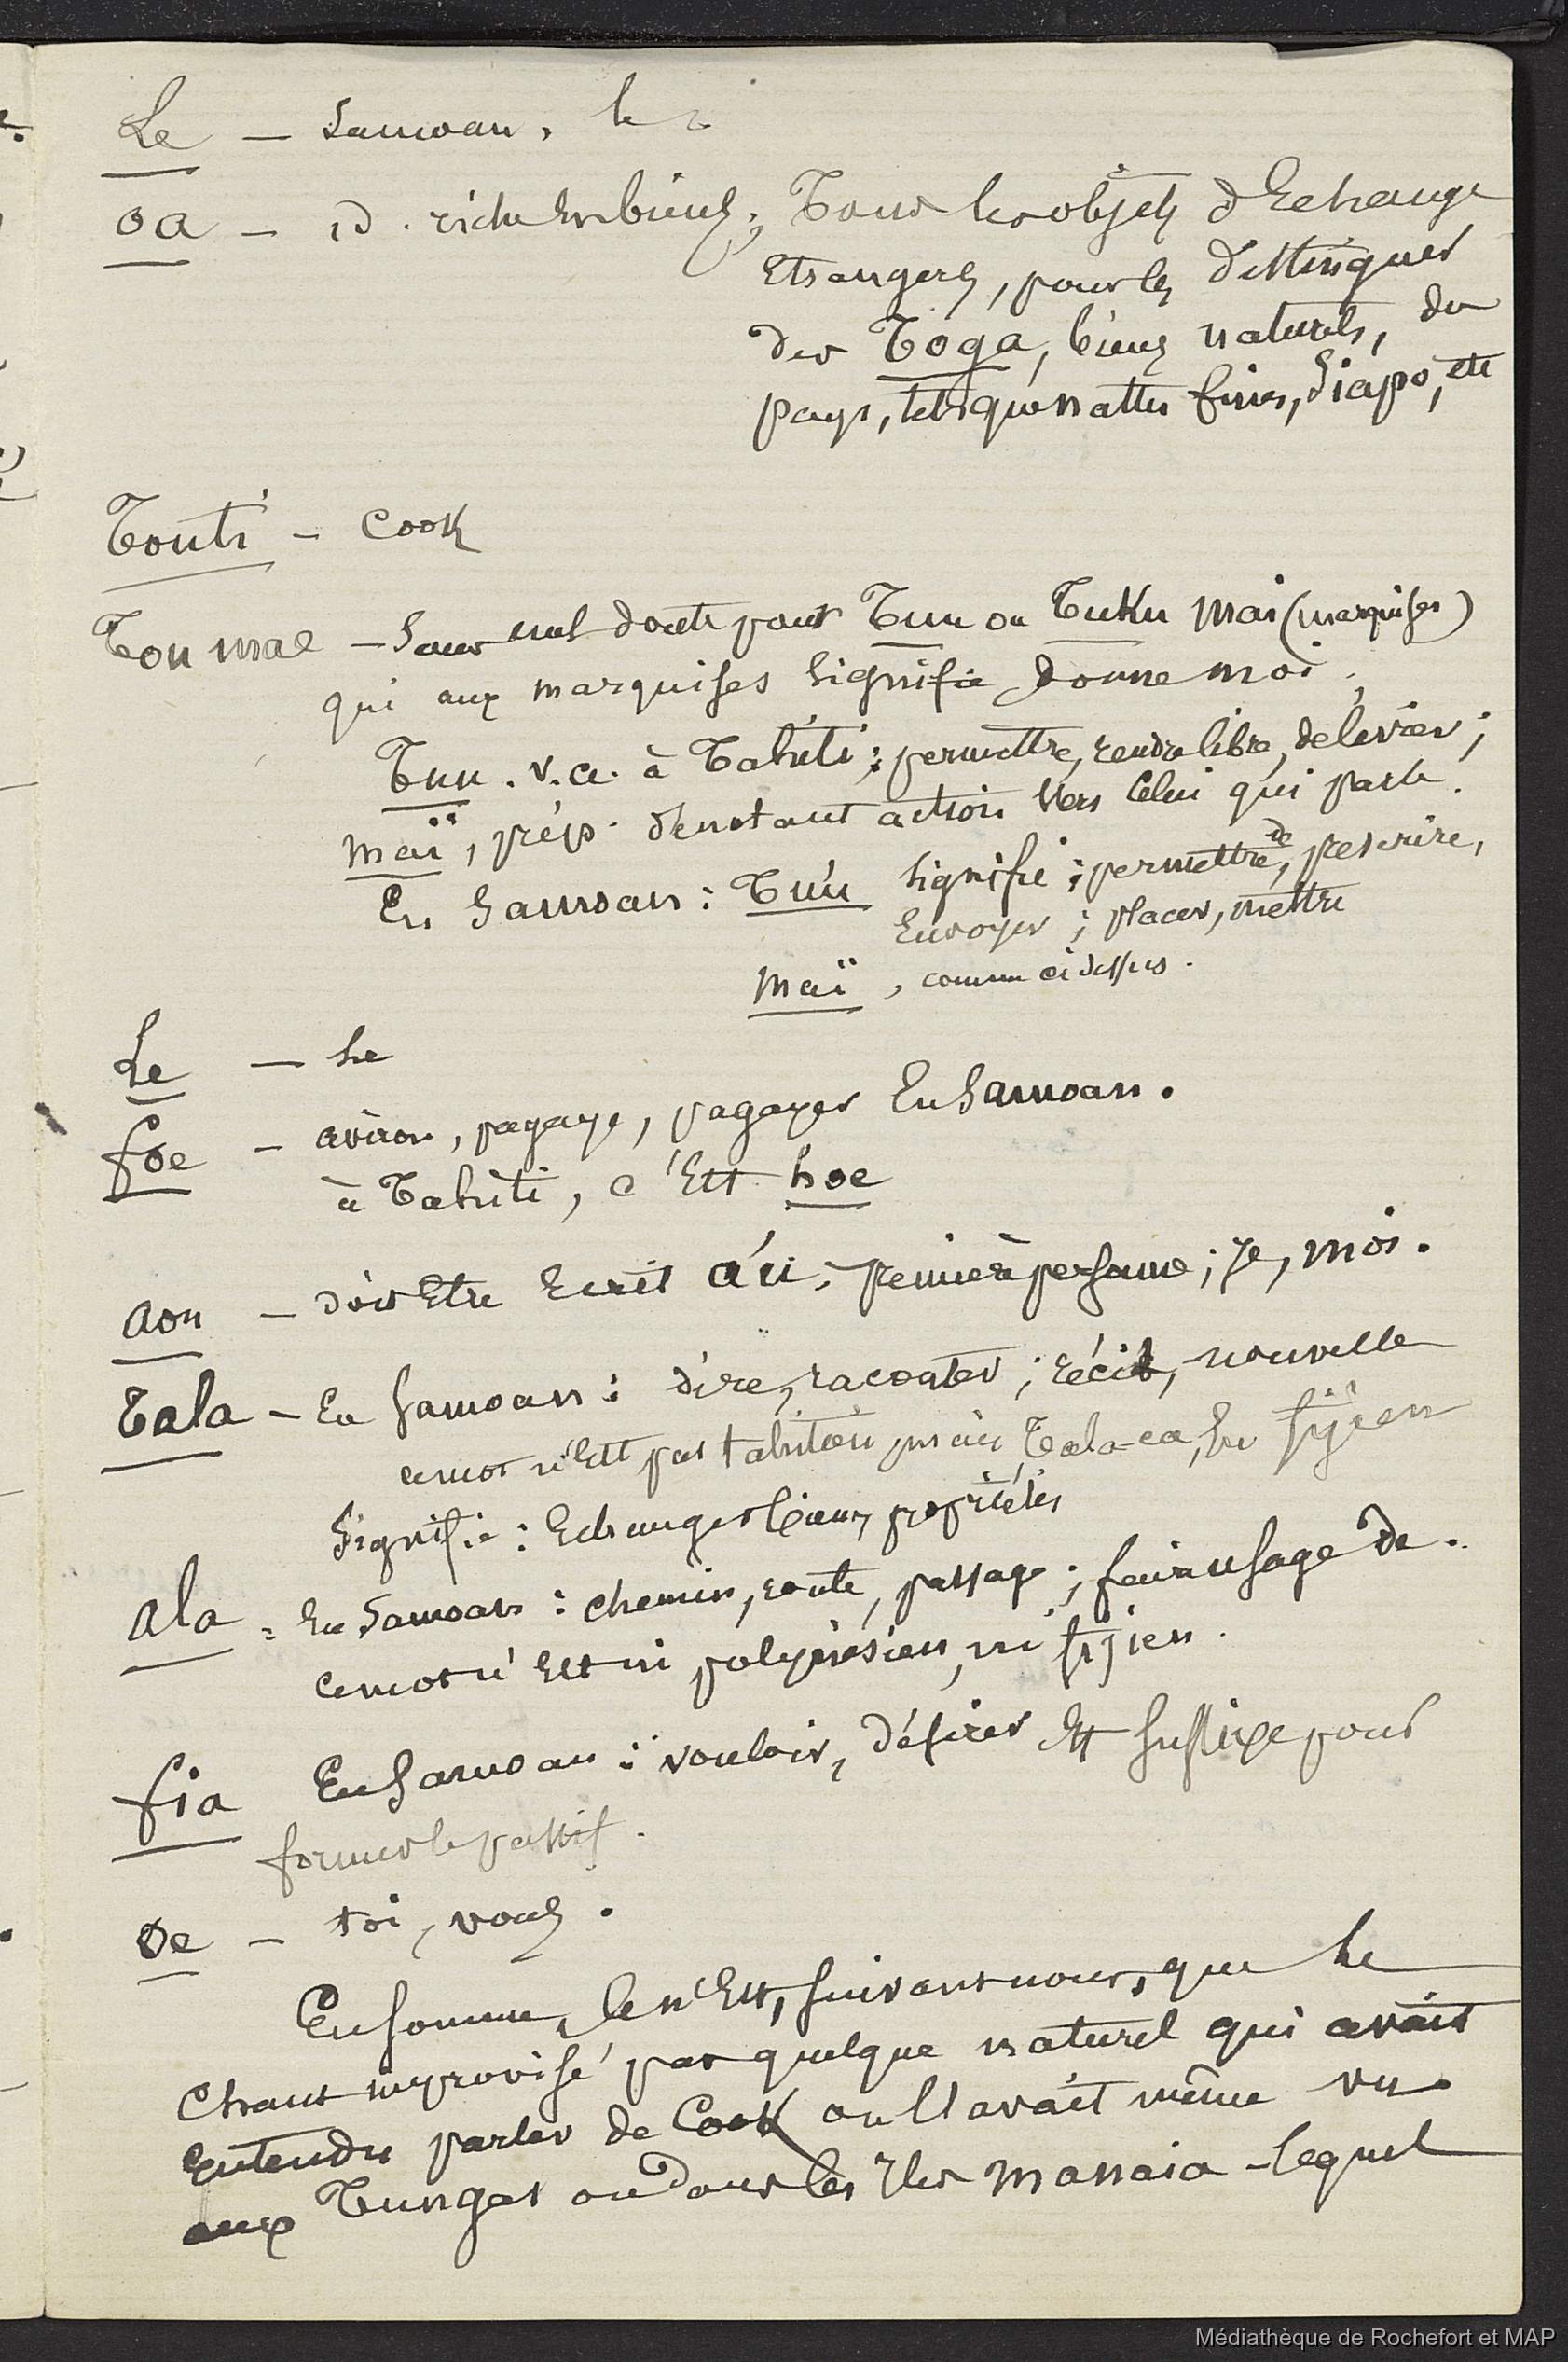 Le — Samoan, le
oa — id. riche en biens; Tous les objets d'Echange
Etrangers, pour les distinguer
des Toga, biens naturels, du
pays, tels que nattes fines, Siapo, etc
Touti — Cook
Tou mae — Sans nul doute pour Tuu ou Tuku mai (marquises)
qui aux marquises signifie donne moi;
Tuu. v. a. à Tahiti; permettre, rendre libre, délivrer;
maï, prép. dénotant action vers celui qui parle.
En Samoan: Tu'u signifie; permettre de, prescrire,
Envoyer; placer, mettre
maï, comme ci dessus.
Le — he
foe — aviron, pagaye, pagayer En Samoan.
à Tahiti, c'Est hoe
aou — doit Etre Ecrit a'u; première personne; je, moi.
Tala — En Samoan: dire, raconter; récit, nouvelle
ce mot n'Est pas tahitien, mais Tala-ca, En fijien
Signifie: Echanger biens, propriétés
ala = En Samoan: chemin, route, passage; faire usage de.
ce mot n'Est ni polynésien, ni fijien.
fia En Samoan: vouloir, désirer Et suffixe pour
former le passif.
oe — toi, vous.
En somme, ce n'Est, suivant nous, que le
Chant improvisé par quelque naturel qui avait
Entendu parler de Cook ou l'avait même vu
aux Tungas ou dans les Iles Manaia - lequel
Médiathèque de Rochefort et MAP